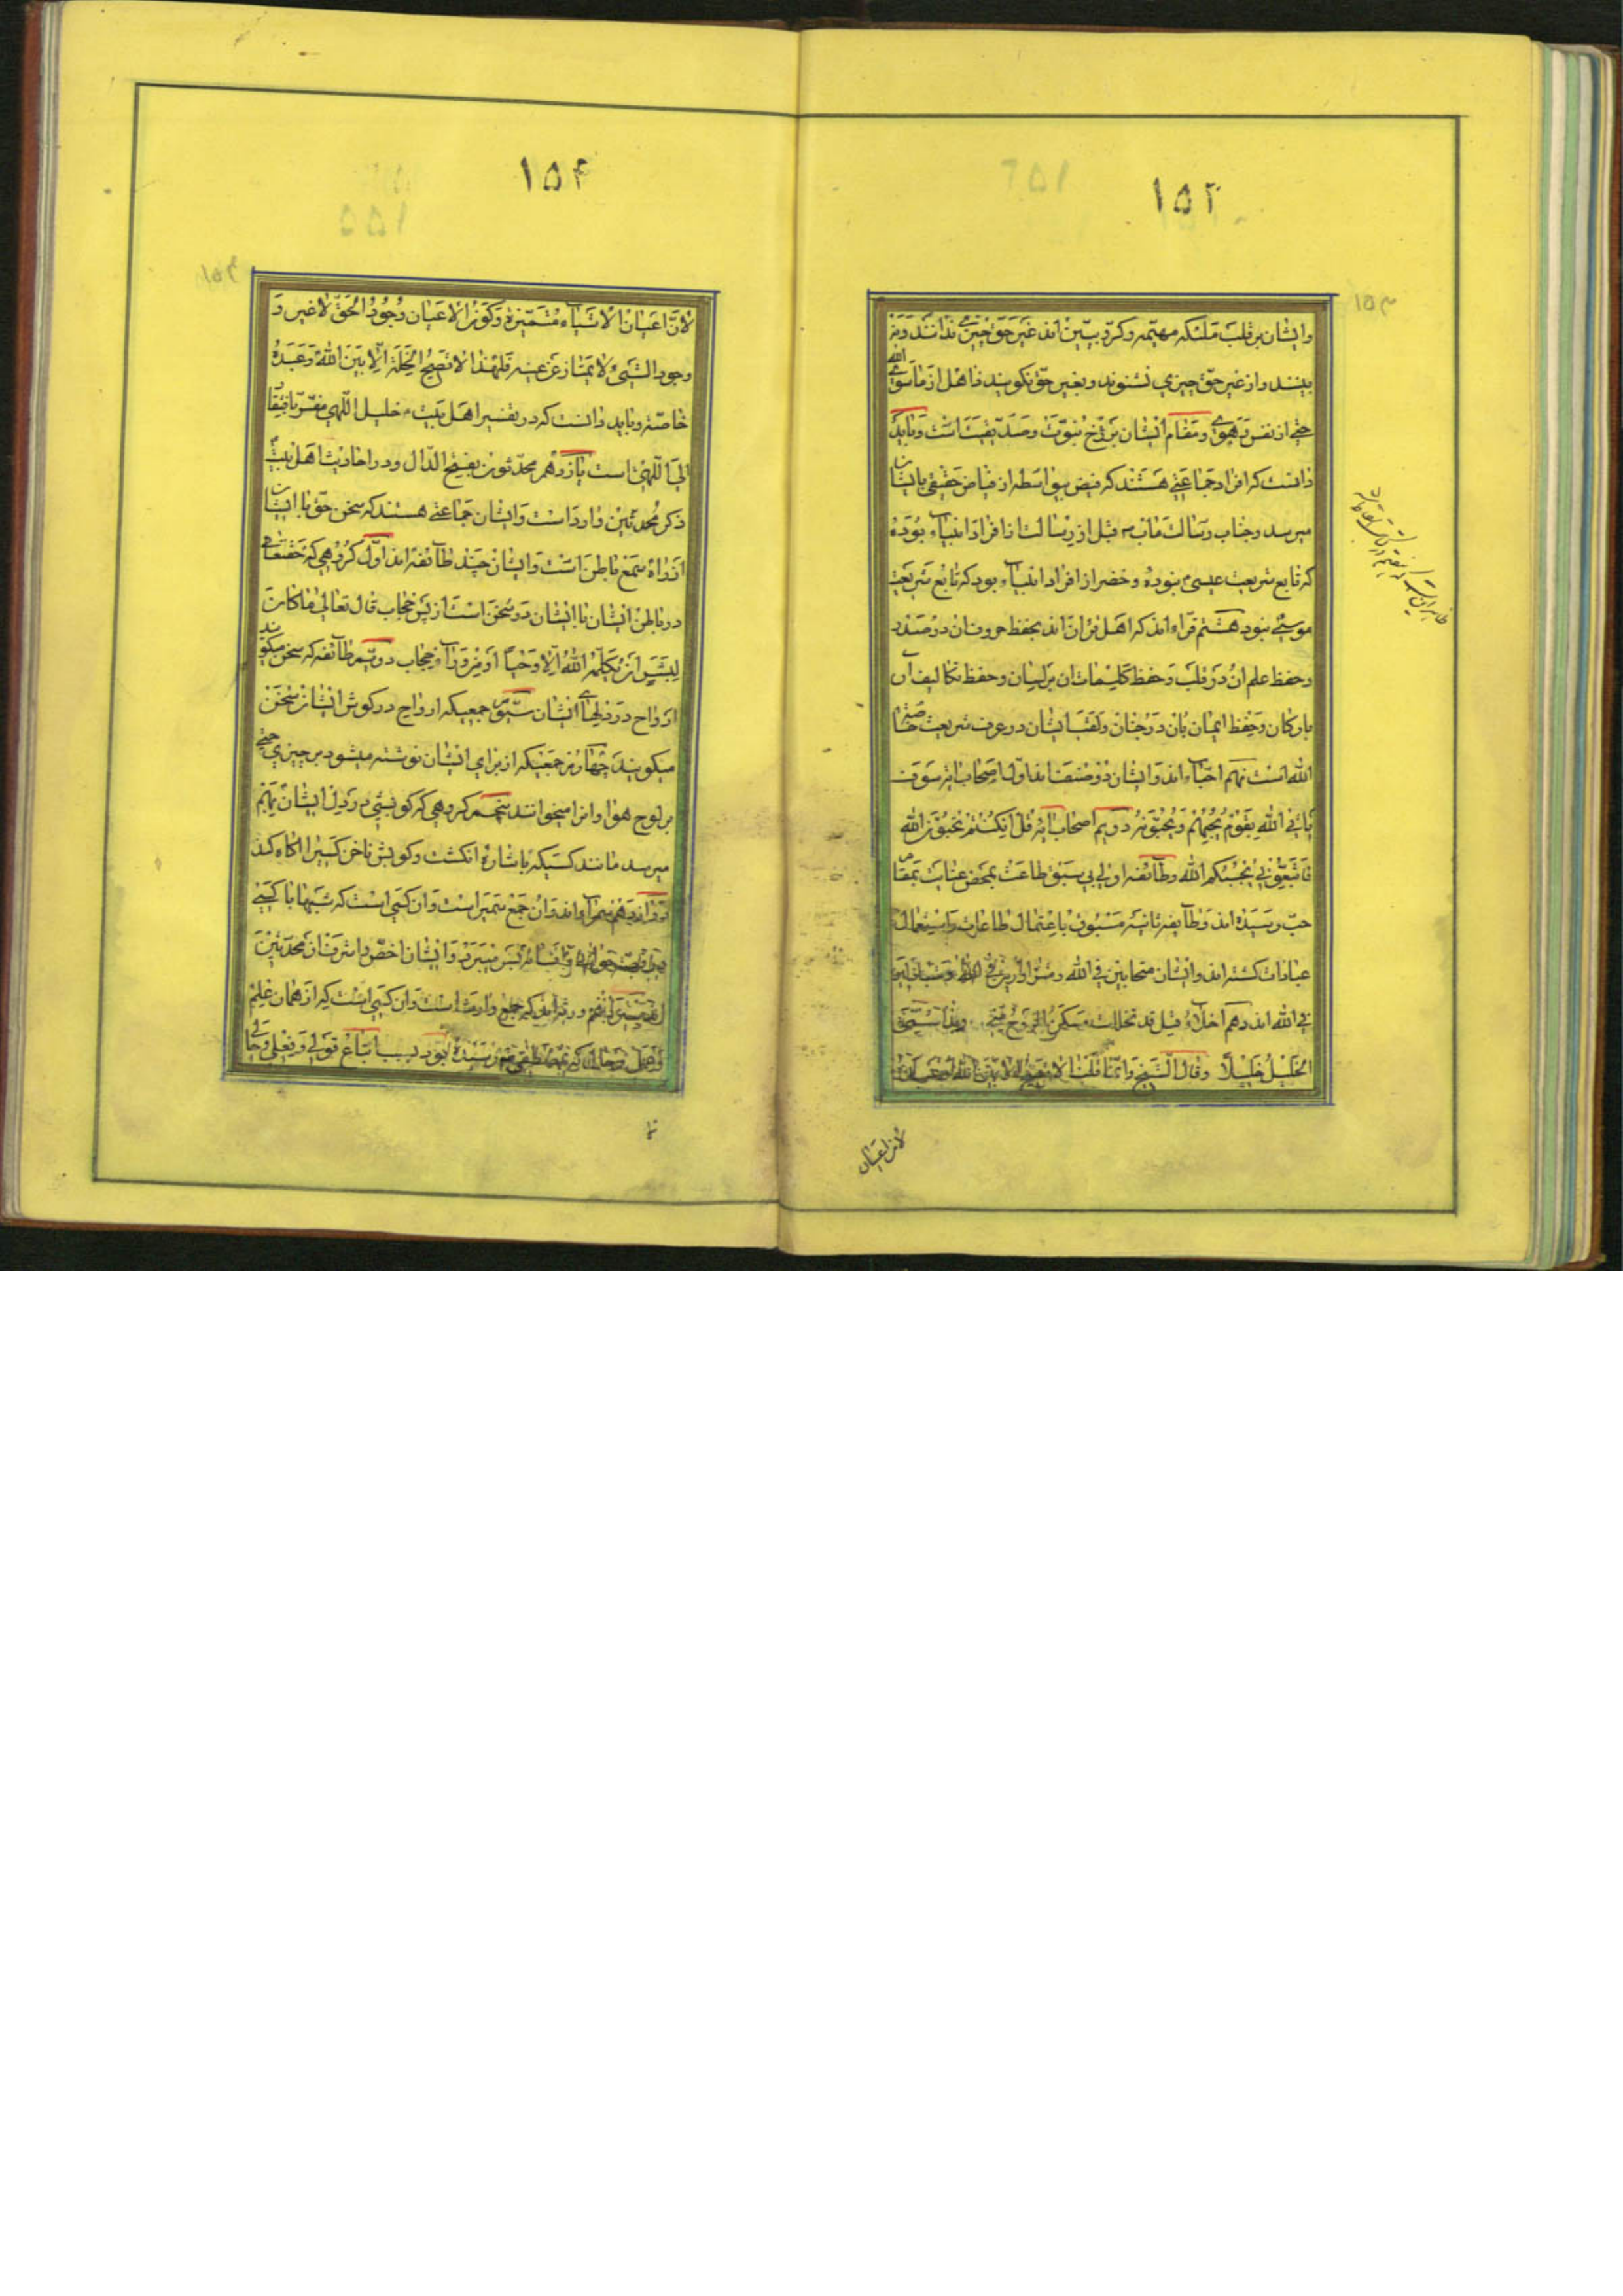 ۱۵۳
وایشان بر قلب ملئکه مهیمه وکروبیین اند غیر حق چیزی ندانند ونه
بینند واز غیر حق چیزی نشنوند وبغیر حق نکویند ذاهل از ماسوی الله
حتی از نفس ومقام ایشان برزخ نبوت وصدیقیت است وباید
دانست که افراد جماعتی هستند که فیض بیواسطه از فیاض حقیقی بایشان
میرسد وجناب رسالت مآب قبل از رسالت از افراد انبیاء بوده
که تابع شریعت عیسی نبوده وخضر از افراد انبیاء بود که تابع شریعت
موسی نبود هشتم قراء اند که اهل قران اند بحفظ حروف ان در صدر
وحفظ علم ان در قلب وحفظ کلیمات ان بر لسان وحفظ تکالیف ان
بارکان وحفظ ایمان بان در جنان ولقب ایشان در عرف شریعت خاصة
الله است نهم احباء اند وایشان دو صنف اند اول اصحاب ایه سوف
یأتی الله بقوم یحبهم ویحبونه دویم اصحاب ایه قل ان کنتم تحبون الله
فاتبعونی یحببکم الله وطآئفه اولی بی سبق طاعت بمحض عنایت بمقام
حب رسیده اند وطآیفه ثانیه مسبوق باعتمال طاعات واستعمال
عبادات کشته اند وایشان متحابین فی الله
فی الله اند دهم اخلاء قیل قد تخللت مسلک الروح منی وبذا سمی
الخلیل خلیلا وقال الشیخ وانما قلنا لا
لان اعیان
۱۵۴
لان اعیان الاشیاء متمیزة وکون الاعیان وجود الحق لا غیر و
وجود الشیئ لا یمتاز عن عینه فلهذا لا تصح الخلة الا بین الله وعبده
خاصة وباید دانست که در تفسیر اهل بیت خلیل اللهی مفسر بافتقار
الی اللهی است یازدهم محدثون بفتح الدال ودر احادیث اهل بیت
ذکر محدثین وارد است وایشان جماعتی هستند که سخن حق با ایشان
از راه سمع باطن است وایشان چند طآئفه اند اول کروهی که حقتعالی
در باطن ایشان با ایشان در سخن است از پس حجاب قال تعالی ما کان
لبشر ان یکلمه الله الا وحیا او من ورآء حجاب دویم طآئفه که سخن میکویند
ارواح در دلهای ایشان سیوم جمعیکه ارواح در کوش ایشان سخن
میکویند چهارم جمعیکه از برای ایشان نوشته میشود بر چیزی حتی
بر لوح هوا وانرا میخوانند پنجم کروهی که کویشی در دل ایشان بهم
میرسد مانند کسیکه باشاره انکشت وکویش ناخن کسیرا اکاه کند
دوازدهم سمرآء اند وان جمع سمیر است وان کسی است که شبها با کسی
بسر میبرد وایشان اخص واشرف از محدثین
اند سیزدهم ورثه اند که جمع وارث است وان کسی است که از همان علم
رسیده بود بسبب اتباع قولی وفعلی وحالی